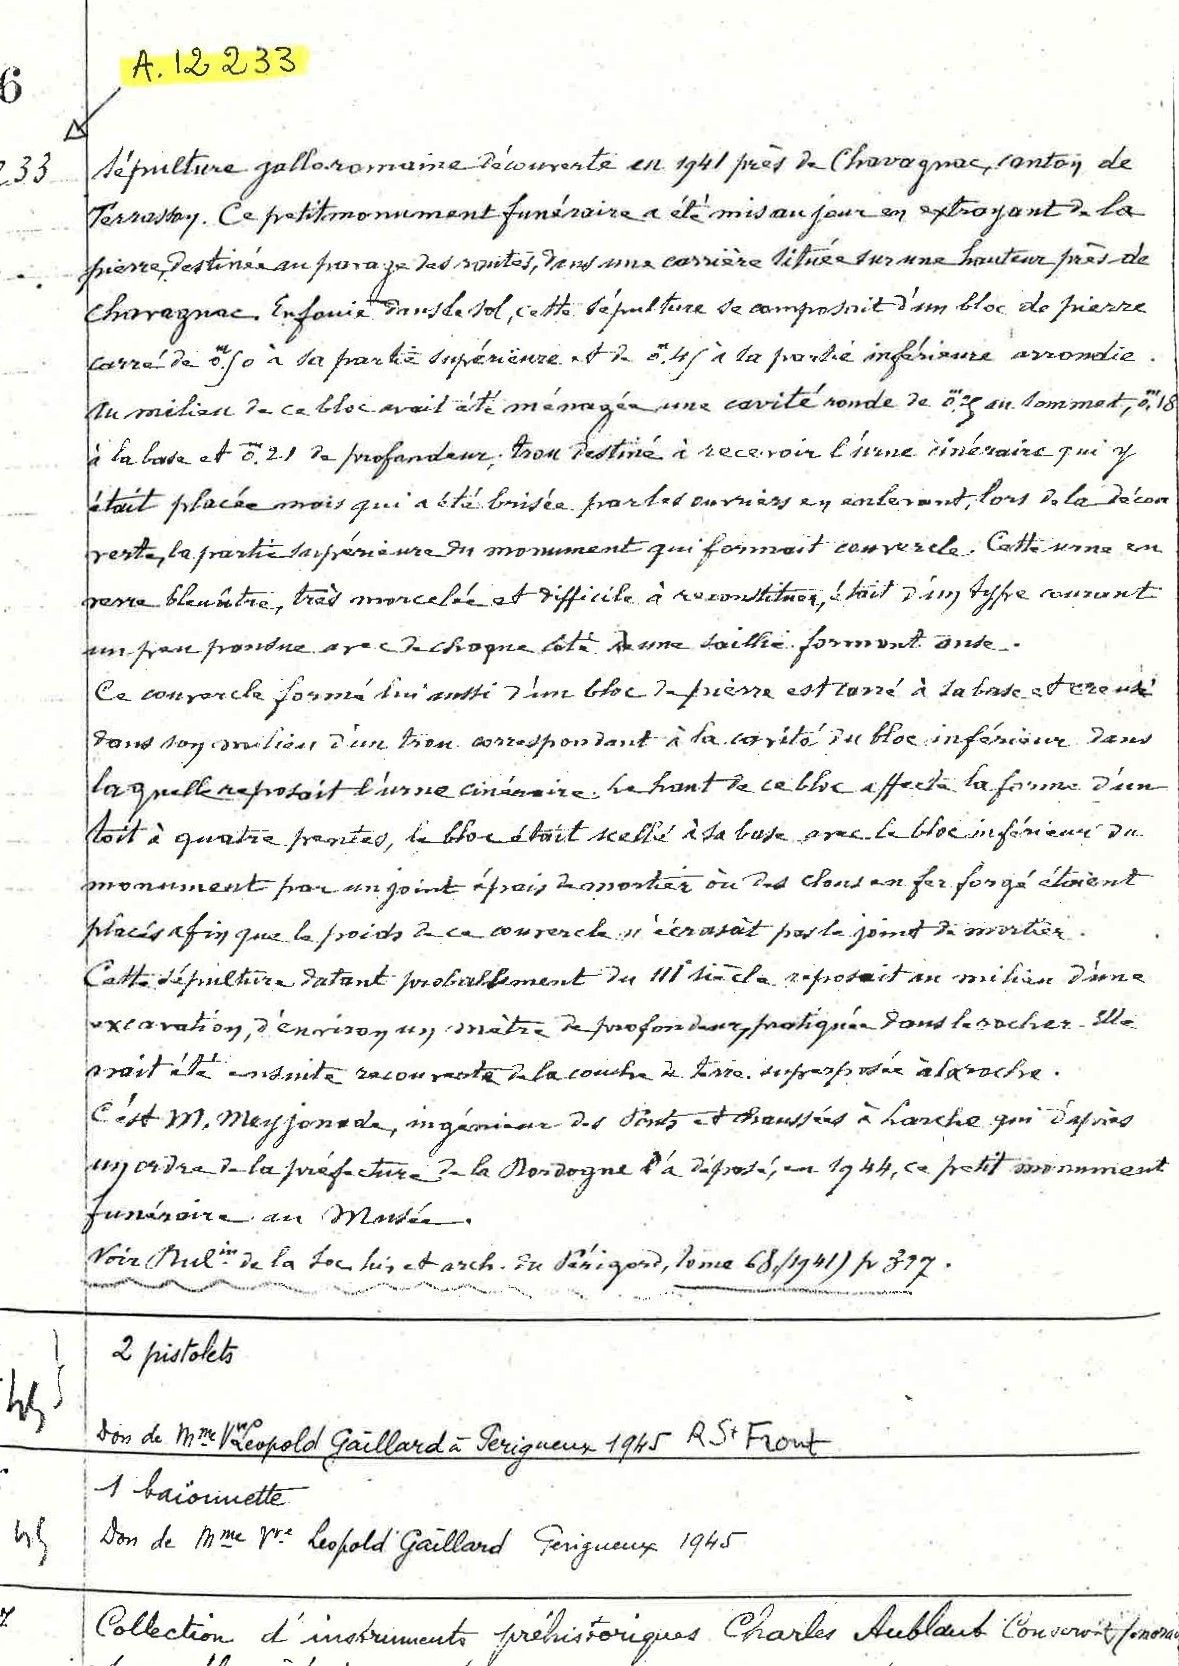 6
A.12 233
233
Sépulture gallo romaine découverte en 1941 près de Chavagnac, canton de
Terrasson. Ce petit monument funéraire a été mis au jour en extrayant de la
pierre, destinée au pavage des routes, dans une carrière située sur une hauteur près de
Chavagnac. Enfouie dans le sol, cette sépulture se composait d'un bloc de pierre
carré de 0m.50 à sa partie supérieure et de 0m.45 à sa partie inférieure arrondie.
Au milieu de ce bloc avait été ménagée une cavité ronde de 0m.25 au sommet, 0m.18
à la base et 0m.21 de profondeur; trou destiné à recevoir l'urne cinéraire qui y
était placée mais qui a été brisée par les ouvriers en enlevant, lors de la décou
verte, la partie supérieure du monument qui formait couvercle. Cette urne en
verre bleuâtre, très morcelée et difficile à reconstituer, était d'un type courant
un peu pansue avec de chaque côté une saillie formant anse.
Ce couvercle formé lui aussi d'un bloc de pierre est carré à sa base et creusé
dans son milieu d'un trou correspondant à la cavité du bloc inférieur dans
laquelle reposait l'urne cinéraire. Le haut de ce bloc affecte la forme d'un
toit à quatre pentes, le bloc était scellé à sa base avec le bloc inférieur du
monument par un joint épais de mortier où des clous en fer forgé étaient
placés afin que le poids de ce couvercle n'écrasât pas le joint de mortier.
Cette sépulture datant probablement du IIIe siècle reposait au milieu d'une
excavation, d'environ un mètre de profondeur, pratiquée dans le rocher. Elle
avait été ensuite recouverte de la couche de terre superposée à la roche.
C'est M. Meyjonade, ingénieur des Ponts et chaussées à Larche qui d'après
un ordre de la préfecture de la Dordogne l'a déposé, en 1944, ce petit monument
funéraire au Musée.
Voir Bulin de la Soc. his. et arch. du Périgord, tome 68, (1941) p 397.
2 pistolets
Don de Mme Vve Leopold Gaillard à Perigueux 1945 R St Front
1 baïonnette
45
Don de Mme Vve Leopold Gaillard Perigueux 1945
7
Collection d'instruments préhistoriques Charles Aublant